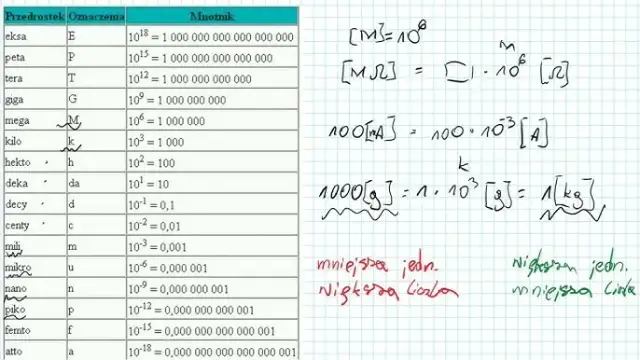 Przedrostek Oznaczenie Mnożnik
eksa E 10^18 = 1 000 000 000 000 000 000
peta P 10^15 = 1 000 000 000 000 000
tera T 10^12 = 1 000 000 000 000
giga G 10^9 = 1 000 000 000
mega M 10^6 = 1 000 000
kilo k 10^3 = 1 000
hekto h 10^2 = 100
deka da 10^1 = 10
decy d 10^-1 = 0,1
centy c 10^-2 = 0,01
mili m 10^-3 = 0,001
mikro u 10^-6 = 0,000 001
nano n 10^-9 = 0,000 000 001
piko p 10^-12 = 0,000 000 000 001
femto f 10^-15 = 0,000 000 000 000 001
atto a 10^-18 = 0,000 000 000 000 000 001
[M]=10^6
M
[MΩ] = □ · 10^6 [Ω]
100[mA] = 100 · 10^-3 [A]
k
1000[g] = 1 · 10^3 [g] = 1[kg]
mniejsza jedn.
większa liczba
większa jedn.
mniejsza liczba